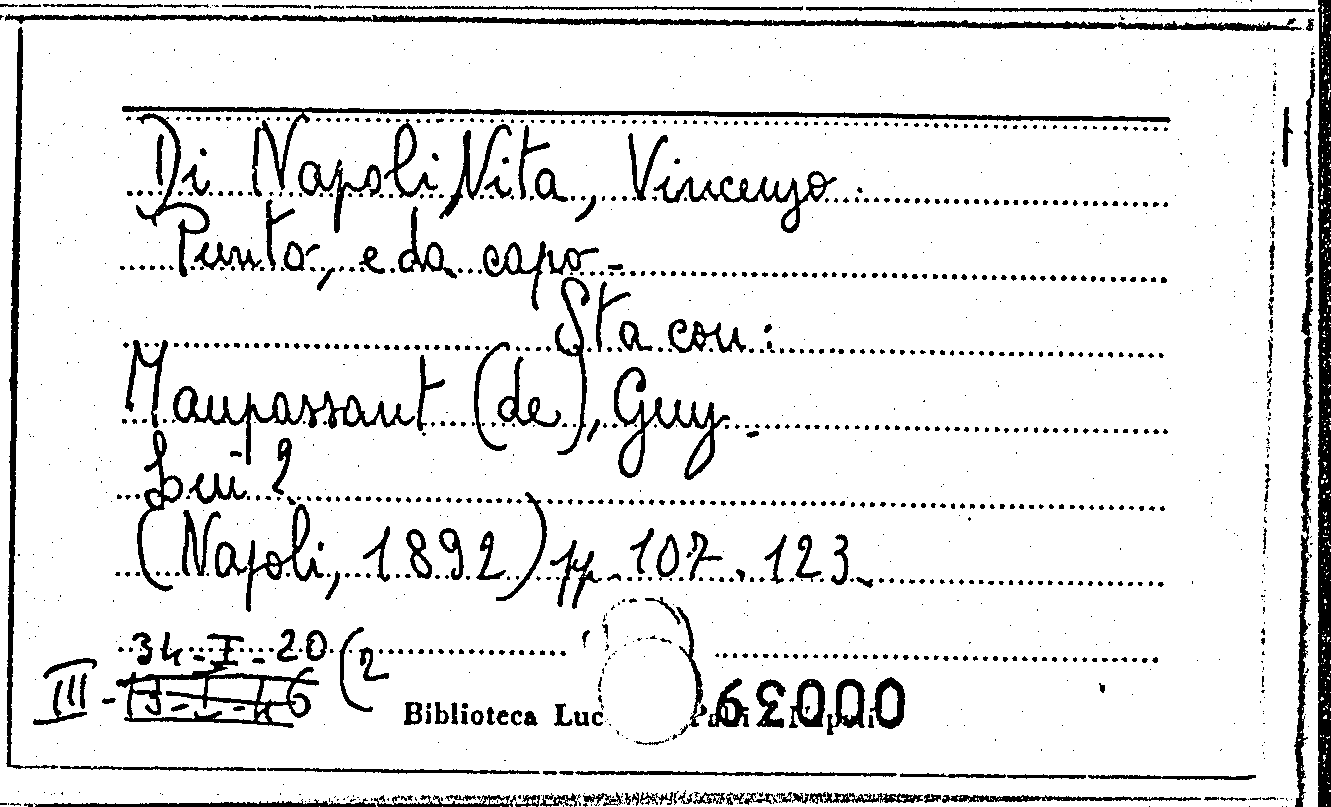 Di Napoli Vita, Vincenzo.
Punto, e da capo -
Sta con:
Maupassant (de), Guy.
Lui?
(Napoli, 1892) pp. 107-123.
34-I-20 (2
III -
Biblioteca Luc